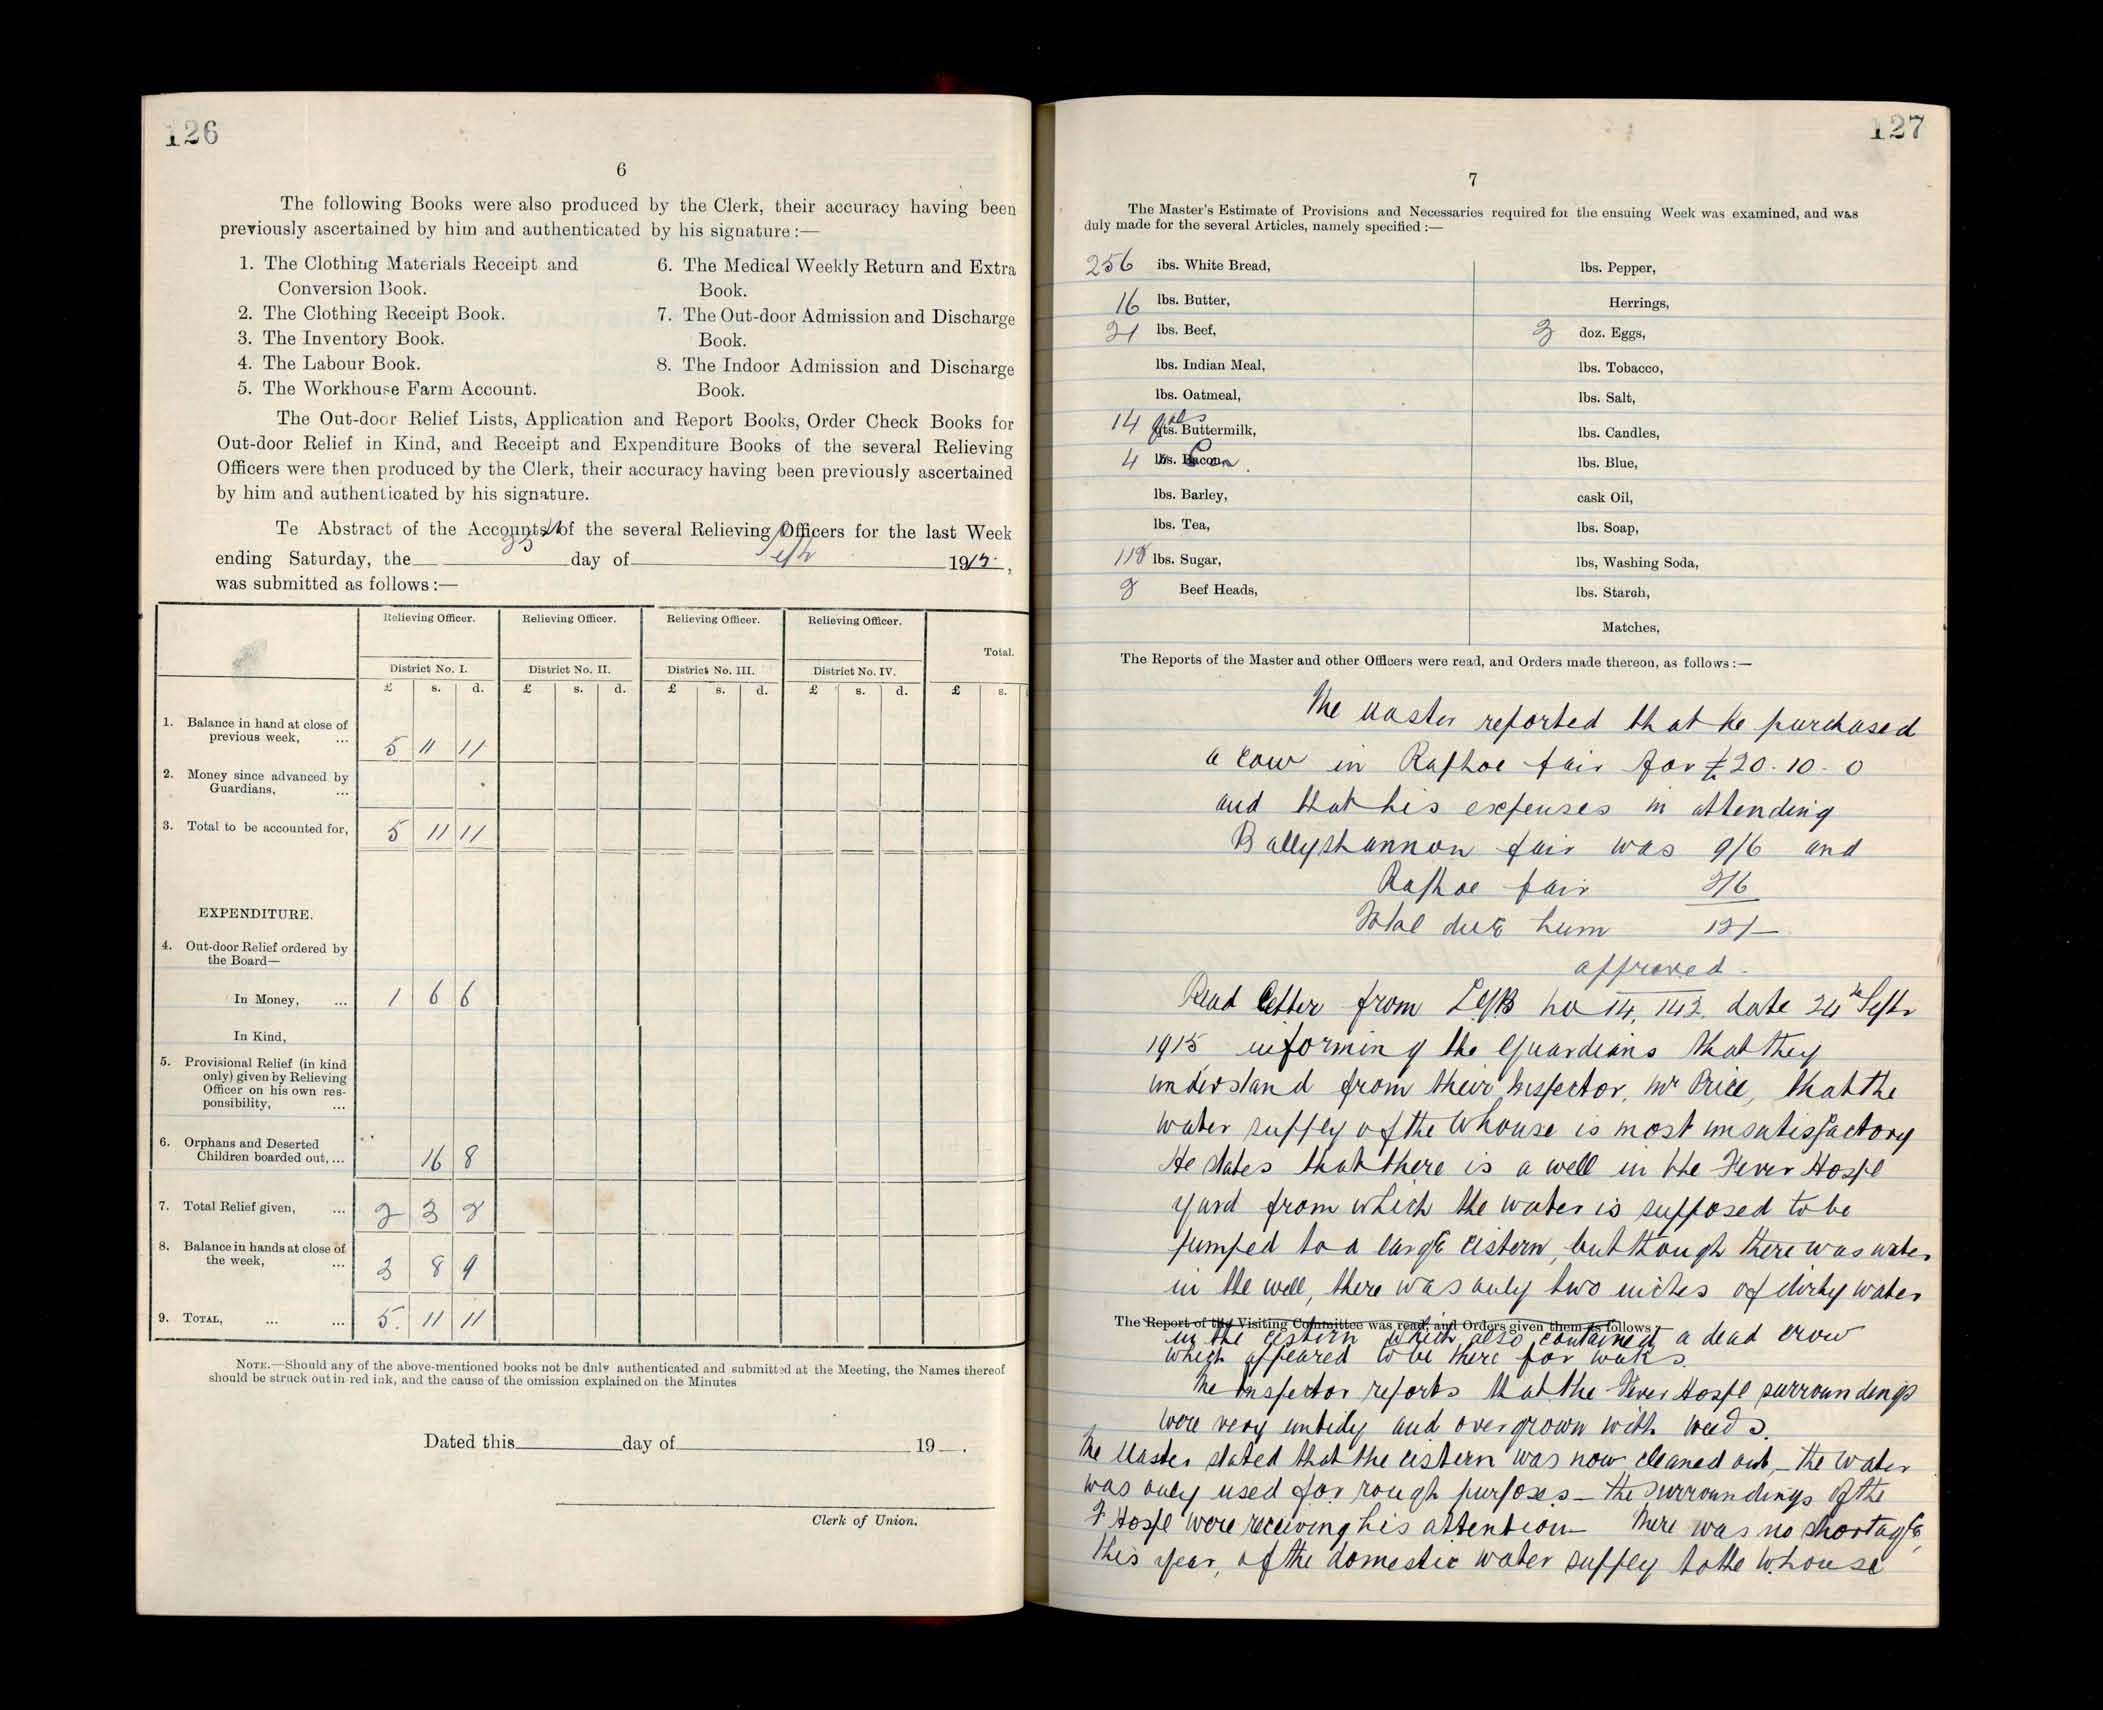 126
6
The following Books were also produced by the Clerk, their accuracy having been
previously ascertained by him and authenticated by his signature :—
1. The Clothing Materials Receipt and
Conversion Book.
2. The Clothing Receipt Book.
3. The Inventory Book.
4. The Labour Book.
5. The Workhouse Farm Account.
6. The Medical Weekly Return and Extra
Book.
7. The Out-door Admission and Discharge
Book.
8. The Indoor Admission and Discharge
Book.
The Out-door Relief Lists, Application and Report Books, Order Check Books for
Out-door Relief in Kind, and Receipt and Expenditure Books of the several Relieving
Officers were then produced by the Clerk, their accuracy having been previously ascertained
by him and authenticated by his signature.
Te Abstract of the Accounts of the several Relieving Officers for the last Week
ending Saturday, the day of Septr 1915,
was submitted as follows :—
Relieving Officer. Relieving Officer. Relieving Officer. Relieving Officer. Total.
District No. I. District No. II. District No. III. District No. IV.
£ s. d. £ s. d. £ s. d. £ s. d. £ s.
1. Balance in hand at close of
previous week, ... 5 11 11
2. Money since advanced by
Guardians, ...
3. Total to be accounted for, 5 11 11
EXPENDITURE.
4. Out-door Relief ordered by
the Board—
In Money, ... 1 6 6
In Kind,
5. Provisional Relief (in kind
only) given by Relieving
Officer on his own res-
ponsibility, ...
6. Orphans and Deserted
Children boarded out, ... 16 8
7. Total Relief given, ... 2 3 2
8. Balance in hands at close of
the week, ... 3 8 9
9. TOTAL, ... ... 5. 11 11
NOTE.—Should any of the above-mentioned books not be duly authenticated and submitted at the Meeting, the Names thereof
should be struck out in red ink, and the cause of the omission explained on the Minutes
Dated this day of 19 .
Clerk of Union.
127
7
The Master's Estimate of Provisions and Necessaries required for the ensuing Week was examined, and was
duly made for the several Articles, namely specified :—
256 lbs. White Bread,
16 lbs. Butter,
21 lbs. Beef,
lbs. Indian Meal,
lbs. Oatmeal,
14 gals Buttermilk,
4 lbs. Bacon,
lbs. Barley,
lbs. Tea,
118 lbs. Sugar,
2 Beef Heads,
lbs. Pepper,
Herrings,
3 doz. Eggs,
lbs. Tobacco,
lbs. Salt,
lbs. Candles,
lbs. Blue,
cask Oil,
lbs. Soap,
lbs, Washing Soda,
lbs. Starch,
Matches,
The Reports of the Master and other Officers were read, and Orders made thereon, as follows :—
The Master reported that he purchased
a cow in Raphoe fair for £20. 10. 0
and that his expenses in attending
Ballyshannon fair was 9/6 and
Raphoe fair 2/6
Total due him 12/-
approved.
Read letter from LGB no 14,142. date 24th Septr
1915 informing the Guardians that they
understand from their Inspector, Mr Price, that the
water supply of the Whouse is most unsatisfactory
He states that there is a well in the Fever Hospl
yard from which the water is supposed to be
pumped to a large cistern, but though there was water
in the well, there was only two inches of dirty water
The Report of the Visiting Committee was read, and Orders given them as follows :
in the cistern which also contained a dead crow
which appeared to be there for weeks.
The Inspector reports that the Fever Hospl surroundings
were very untidy and overgrown with weeds.
The Master stated that the cistern was now cleaned out, - the water
was only used for rough purposes - the surroundings of the
F Hospl were receiving his attention There was no shortage,
this year, of the domestic water supply to the W.house